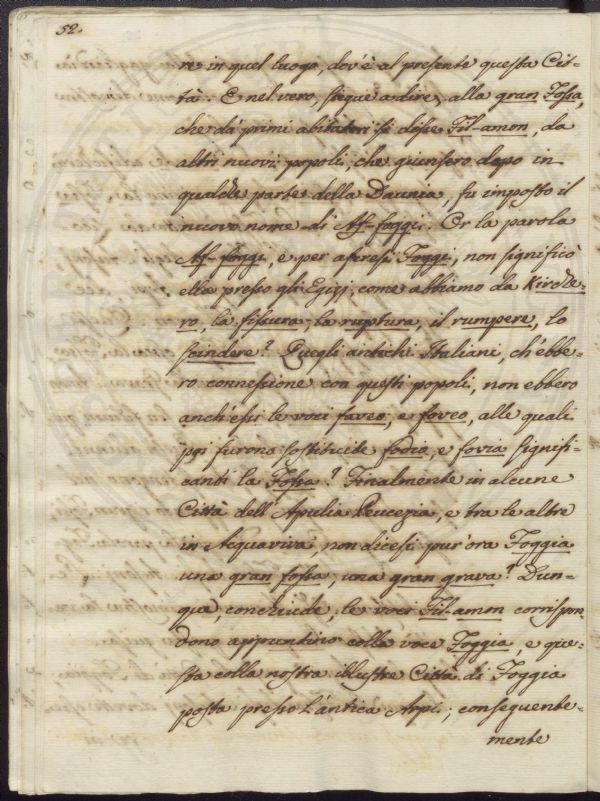 52.
re in quel luogo, dov'è al presente questa Cit-
tà. E nel vero, siegue a dire, alla gran Fossa,
che da' primi abitatori si disse Fil-amon, da
altri nuovi popoli, che giunsero dopo in
qualche parte della Daunia, fu imposto il
nuovo nome di Af-foggi. Or la parola
Af-foggi, e per aferesi Foggi, non significò
ella presso gli Egizj, come abbiamo da Kirche-
ro, la fissura, la ruptura, il rumpere, lo
scindere? Quegli antichi Italiani, ch'ebbe-
ro connessione con questi popoli, non ebbero
anch'essi le voci faveo, e foveo, alle quali
poi furono sostituite fodio, e fovia signifi-
canti la Fossa? Finalmente in alcune
Città dell'Apulia Peucezia, e tra le altre
in Acquaviva, non dicesi pur'ora Foggia
una gran fossa, una gran grava? Dun-
que, conchiude, le voci Fil-amon corrispon-
dono appuntino colla voce Foggia, e que-
sta colla nostra illustre Città di Foggia
posta presso l'antica Arpi; conseguente-
mente